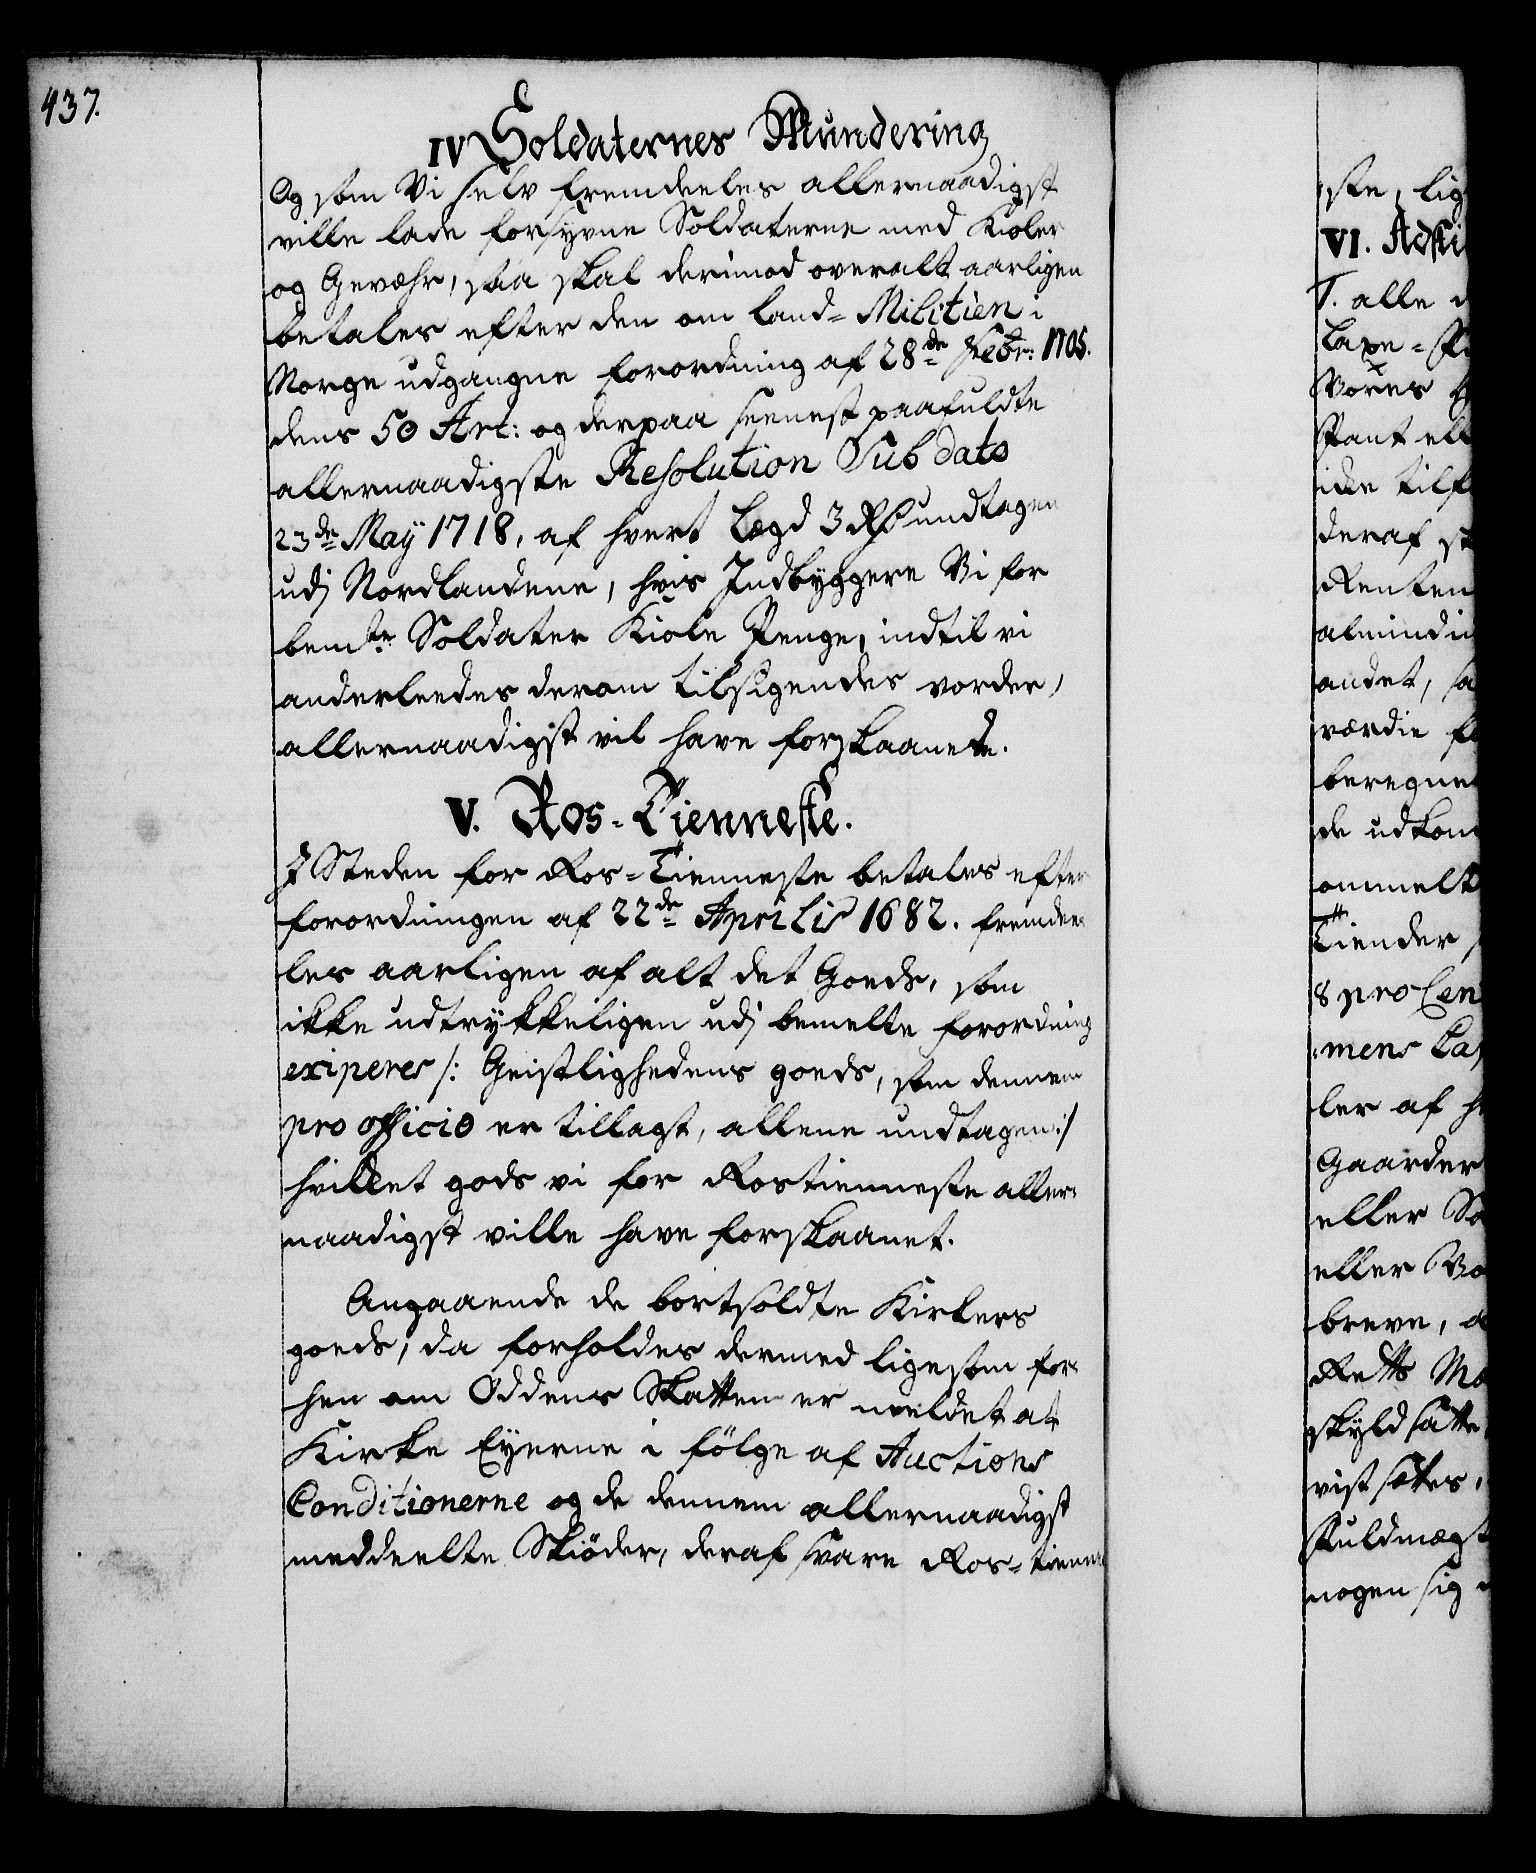 437.
IV Soldaternes Mundering
Og som Vi selv fremdeeles allernaadigst
ville lade forsyvne Soldaterne med Kioler
og Gevæhr, saa skal derimod overalt aarligen
betales efter den om Land-Militien i
Norge udgangne forordning af 28de Febr: 1705.
dens 50 Art: og derpaa seenest paafuldte
allernaadigste Resolution Sub dato
23de May 1718, af hvert Lægd 3 Rd undtagen
udj Nordlandene, hvis Indbyggere Vi for
bemte Soldater Kiole Penge, indtil vi
anderleedes derom tilsigendes vorder,
allernaadigst vil have forskaanede.
V. Ros-Tienneste.
I Steden for Ros-Tienneste betales efter
forordningen af 22de Aprilis 1682. fremdee-
les aarligen af alt det Goeds, som
ikke udtrykkeligen udj bemelte forordning
exiperes /: Geistlighedens goeds, som dennem
pro officio er tillagt, allene undtagen :/
hvilket gods vi for Rostienneste aller-
naadigst ville have forskaanet.
Angaaende de bortsoldte Kirkers
goeds, da forholdes dermed ligesom for-
hen om Oddens Skatten er meldet at
Kirke Eyerne i følge af Auctions
Conditionerne og de dennem allernaadigst
meddeelte Skiøder, deraf svare Ros-tienne
ste, lig
VI. Adski
T. alle d
Laxe-
Vores
Pant ell
icke tilf
deraf
Renten
almindi
andet, sa
værdie f
beregne
de udkom
ommelt
Tiender
8 pro Cen
mens La
ler af h
Gaarder
eller So
eller Vo
breve, a
Retts Mæ
skyld satte
vist sættes,
Fuldmægt
nogen sig